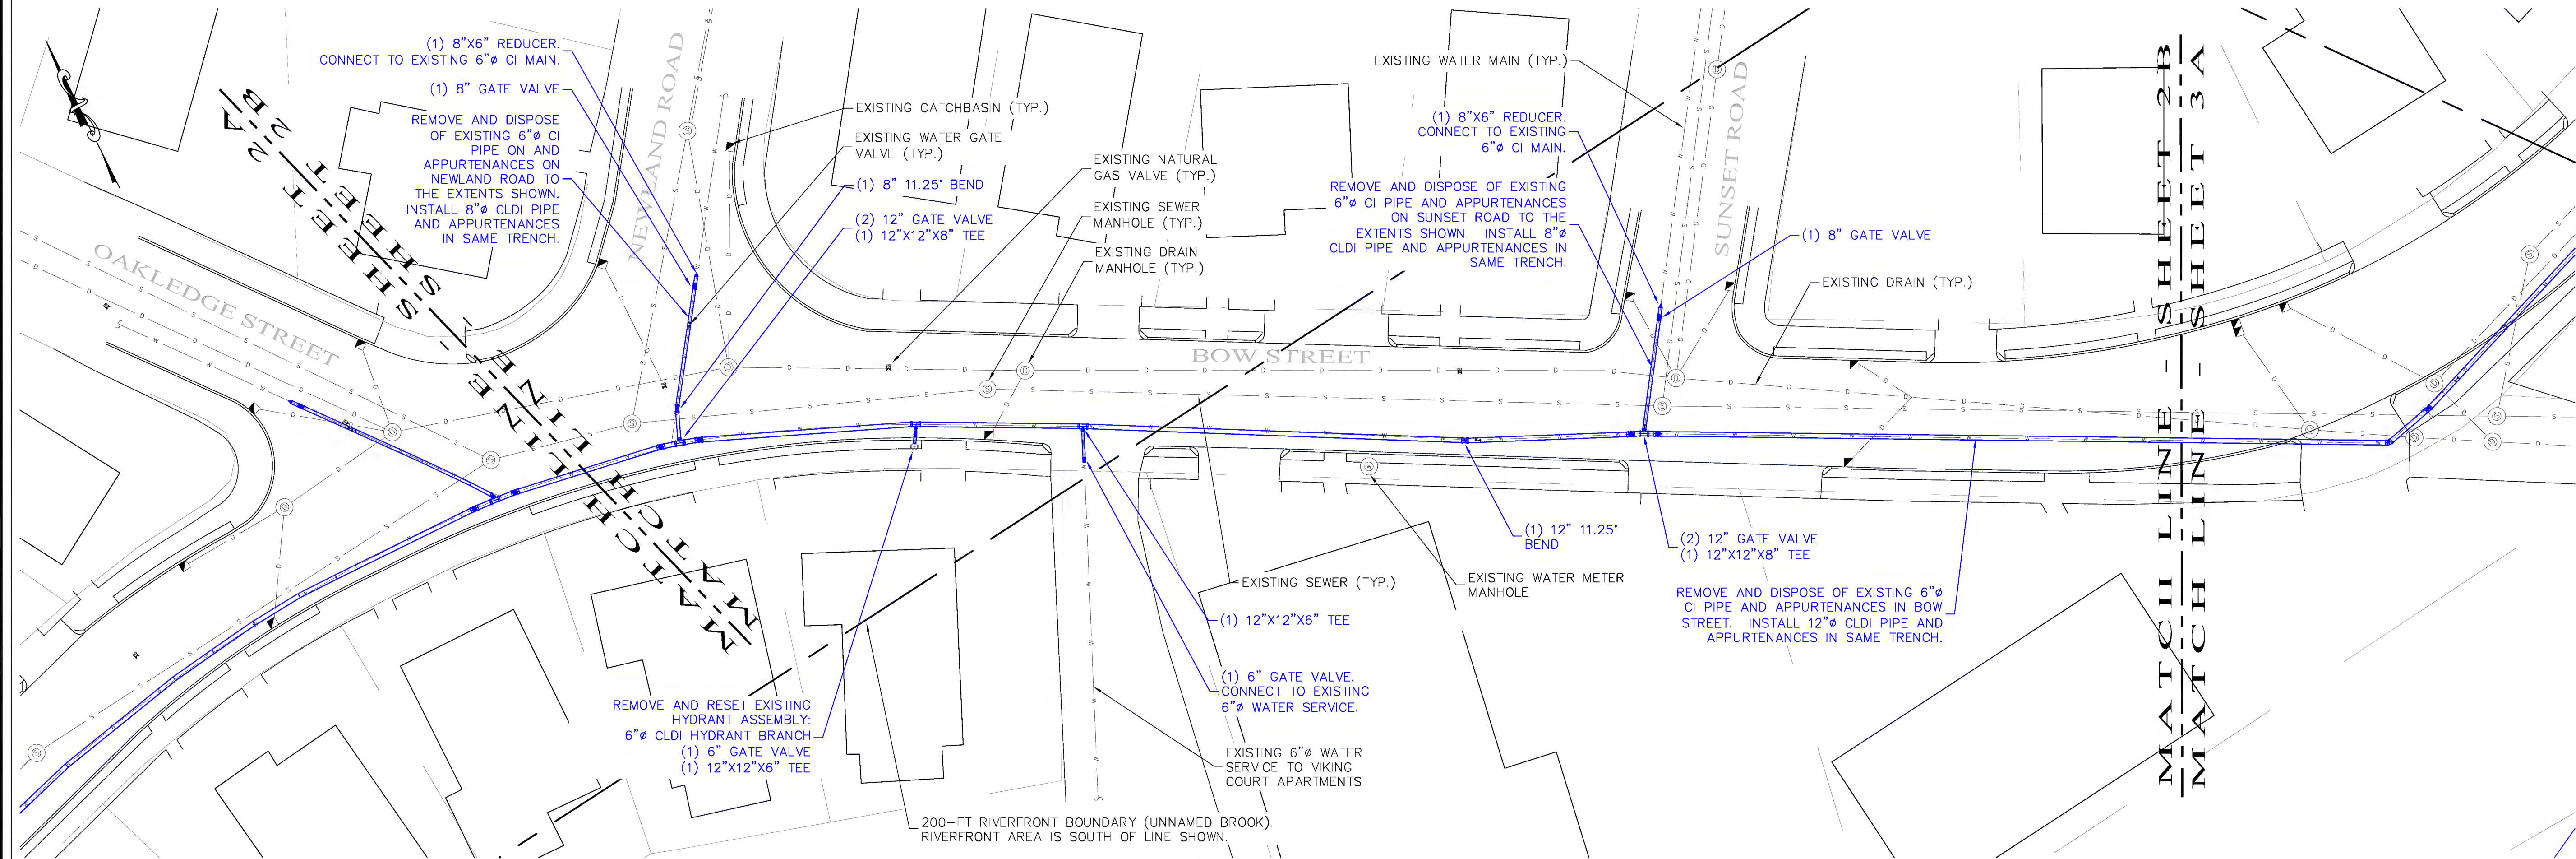 (1) 8"X6" REDUCER.
CONNECT TO EXISTING 6"ø CI MAIN.
(1) 8" GATE VALVE
REMOVE AND DISPOSE
OF EXISTING 6"ø CI
PIPE ON AND
APPURTENANCES ON
NEWLAND ROAD TO
THE EXTENTS SHOWN.
INSTALL 8"ø CLDI PIPE
AND APPURTENANCES
IN SAME TRENCH.
NEWLAND ROAD
OAKLEDGE STREET
MATCH LINE - SHEET 2A
MATCH LINE - SHEET 2B
EXISTING CATCHBASIN (TYP.)
EXISTING WATER GATE
VALVE (TYP.)
(1) 8" 11.25° BEND
(2) 12" GATE VALVE
(1) 12"X12"X8" TEE
EXISTING NATURAL
GAS VALVE (TYP.)
EXISTING SEWER
MANHOLE (TYP.)
EXISTING DRAIN
MANHOLE (TYP.)
BOW STREET
EXISTING WATER MAIN (TYP.)
(1) 8"X6" REDUCER.
CONNECT TO EXISTING
6"ø CI MAIN.
REMOVE AND DISPOSE OF EXISTING
6"ø CI PIPE AND APPURTENANCES
ON SUNSET ROAD TO THE
EXTENTS SHOWN. INSTALL 8"ø
CLDI PIPE AND APPURTENANCES IN
SAME TRENCH.
SUNSET ROAD
(1) 8" GATE VALVE
EXISTING DRAIN (TYP.)
MATCH LINE - SHEET 2B
MATCH LINE - SHEET 3A
(1) 12" 11.25°
BEND
(2) 12" GATE VALVE
(1) 12"X12"X8" TEE
EXISTING SEWER (TYP.)
EXISTING WATER METER
MANHOLE
REMOVE AND DISPOSE OF EXISTING 6"ø
CI PIPE AND APPURTENANCES IN BOW
STREET. INSTALL 12"ø CLDI PIPE AND
APPURTENANCES IN SAME TRENCH.
(1) 12"X12"X6" TEE
(1) 6" GATE VALVE.
CONNECT TO EXISTING
6"ø WATER SERVICE.
REMOVE AND RESET EXISTING
HYDRANT ASSEMBLY:
6"ø CLDI HYDRANT BRANCH
(1) 6" GATE VALVE
(1) 12"X12"X6" TEE
EXISTING 6"ø WATER
SERVICE TO VIKING
COURT APARTMENTS
200-FT RIVERFRONT BOUNDARY (UNNAMED BROOK).
RIVERFRONT AREA IS SOUTH OF LINE SHOWN.